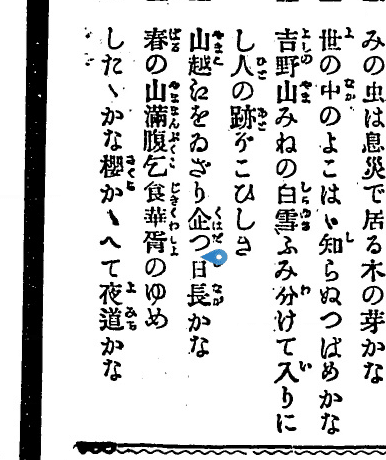 みの虫は息災で居る木の芽かな
世の中のよこはゝ知らぬつばめかな
吉野山みねの白雪ふみ分けて入りに
し人の跡ぞこひしき
山越にをゐざり企つ日長かな
春の山滿腹乞食華胥のゆめ
したゝかな櫻かゝへて夜道かな